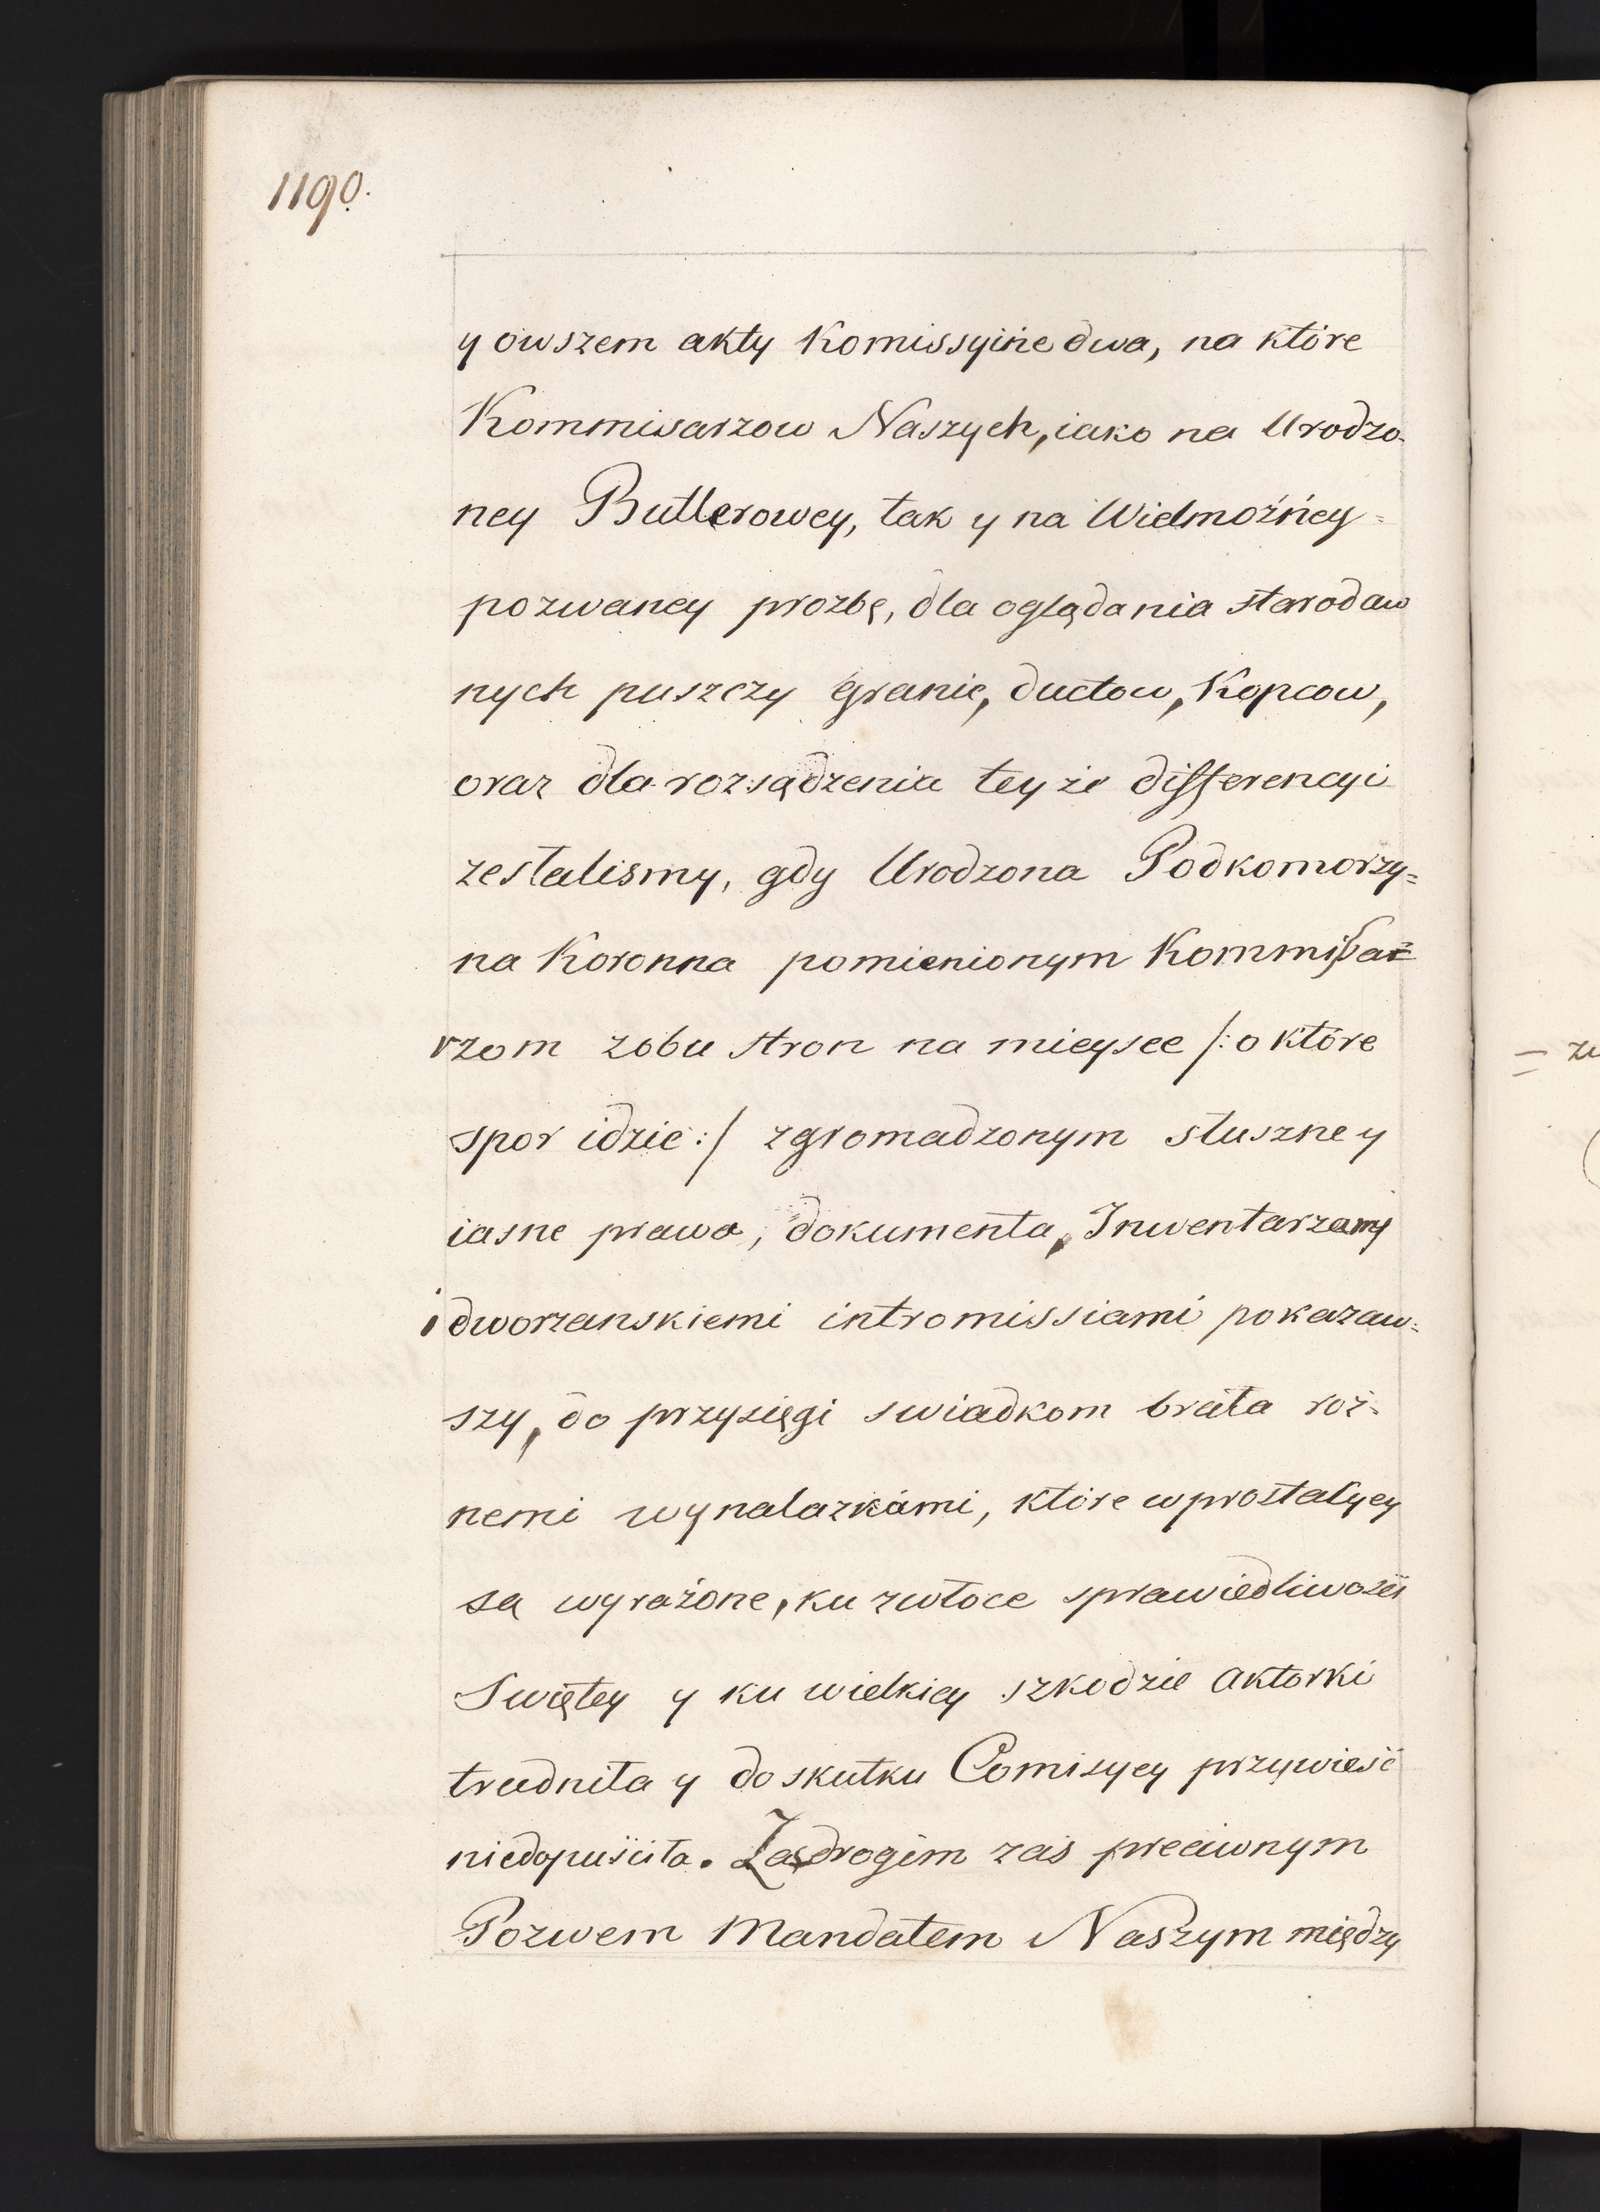 1190.
y owszem akty Komissyine dwa, na które
Kommisarzow Naszych, iako na Urodzo-
ney Butlerowey, tak y na Wielmożńey
pozwaney prozbę, dla oglądania starodaw
nych puszczy granic, ductow, Kopcow,
oraz dla rozsądzenia teyże differencyi
zesłalismy, gdy Urodzona Podkomorzy=
na Koronna pomienionym Kommissar=
rzom zobu stron na mieysce /: o które
spor idzie :/ zgromadzonym słuszne y
iasne prawa, dokumenta, Inwentarzamy
i dworzanskiemi intromissiami pokazaw=
szy, do przysięgi swiadkom brała roż=
nemi wynalazkami, które w prostacyey
są wyrażone, ku zwłoce sprawiedliwości
Swiętey y ku wielkiey szkodzie Aktorki
trudniła y do skutku Comisyey przywieść
niedopuściła. Za drogim zaś przeciwnym
Pozwem Mandatem Naszym między
= ze